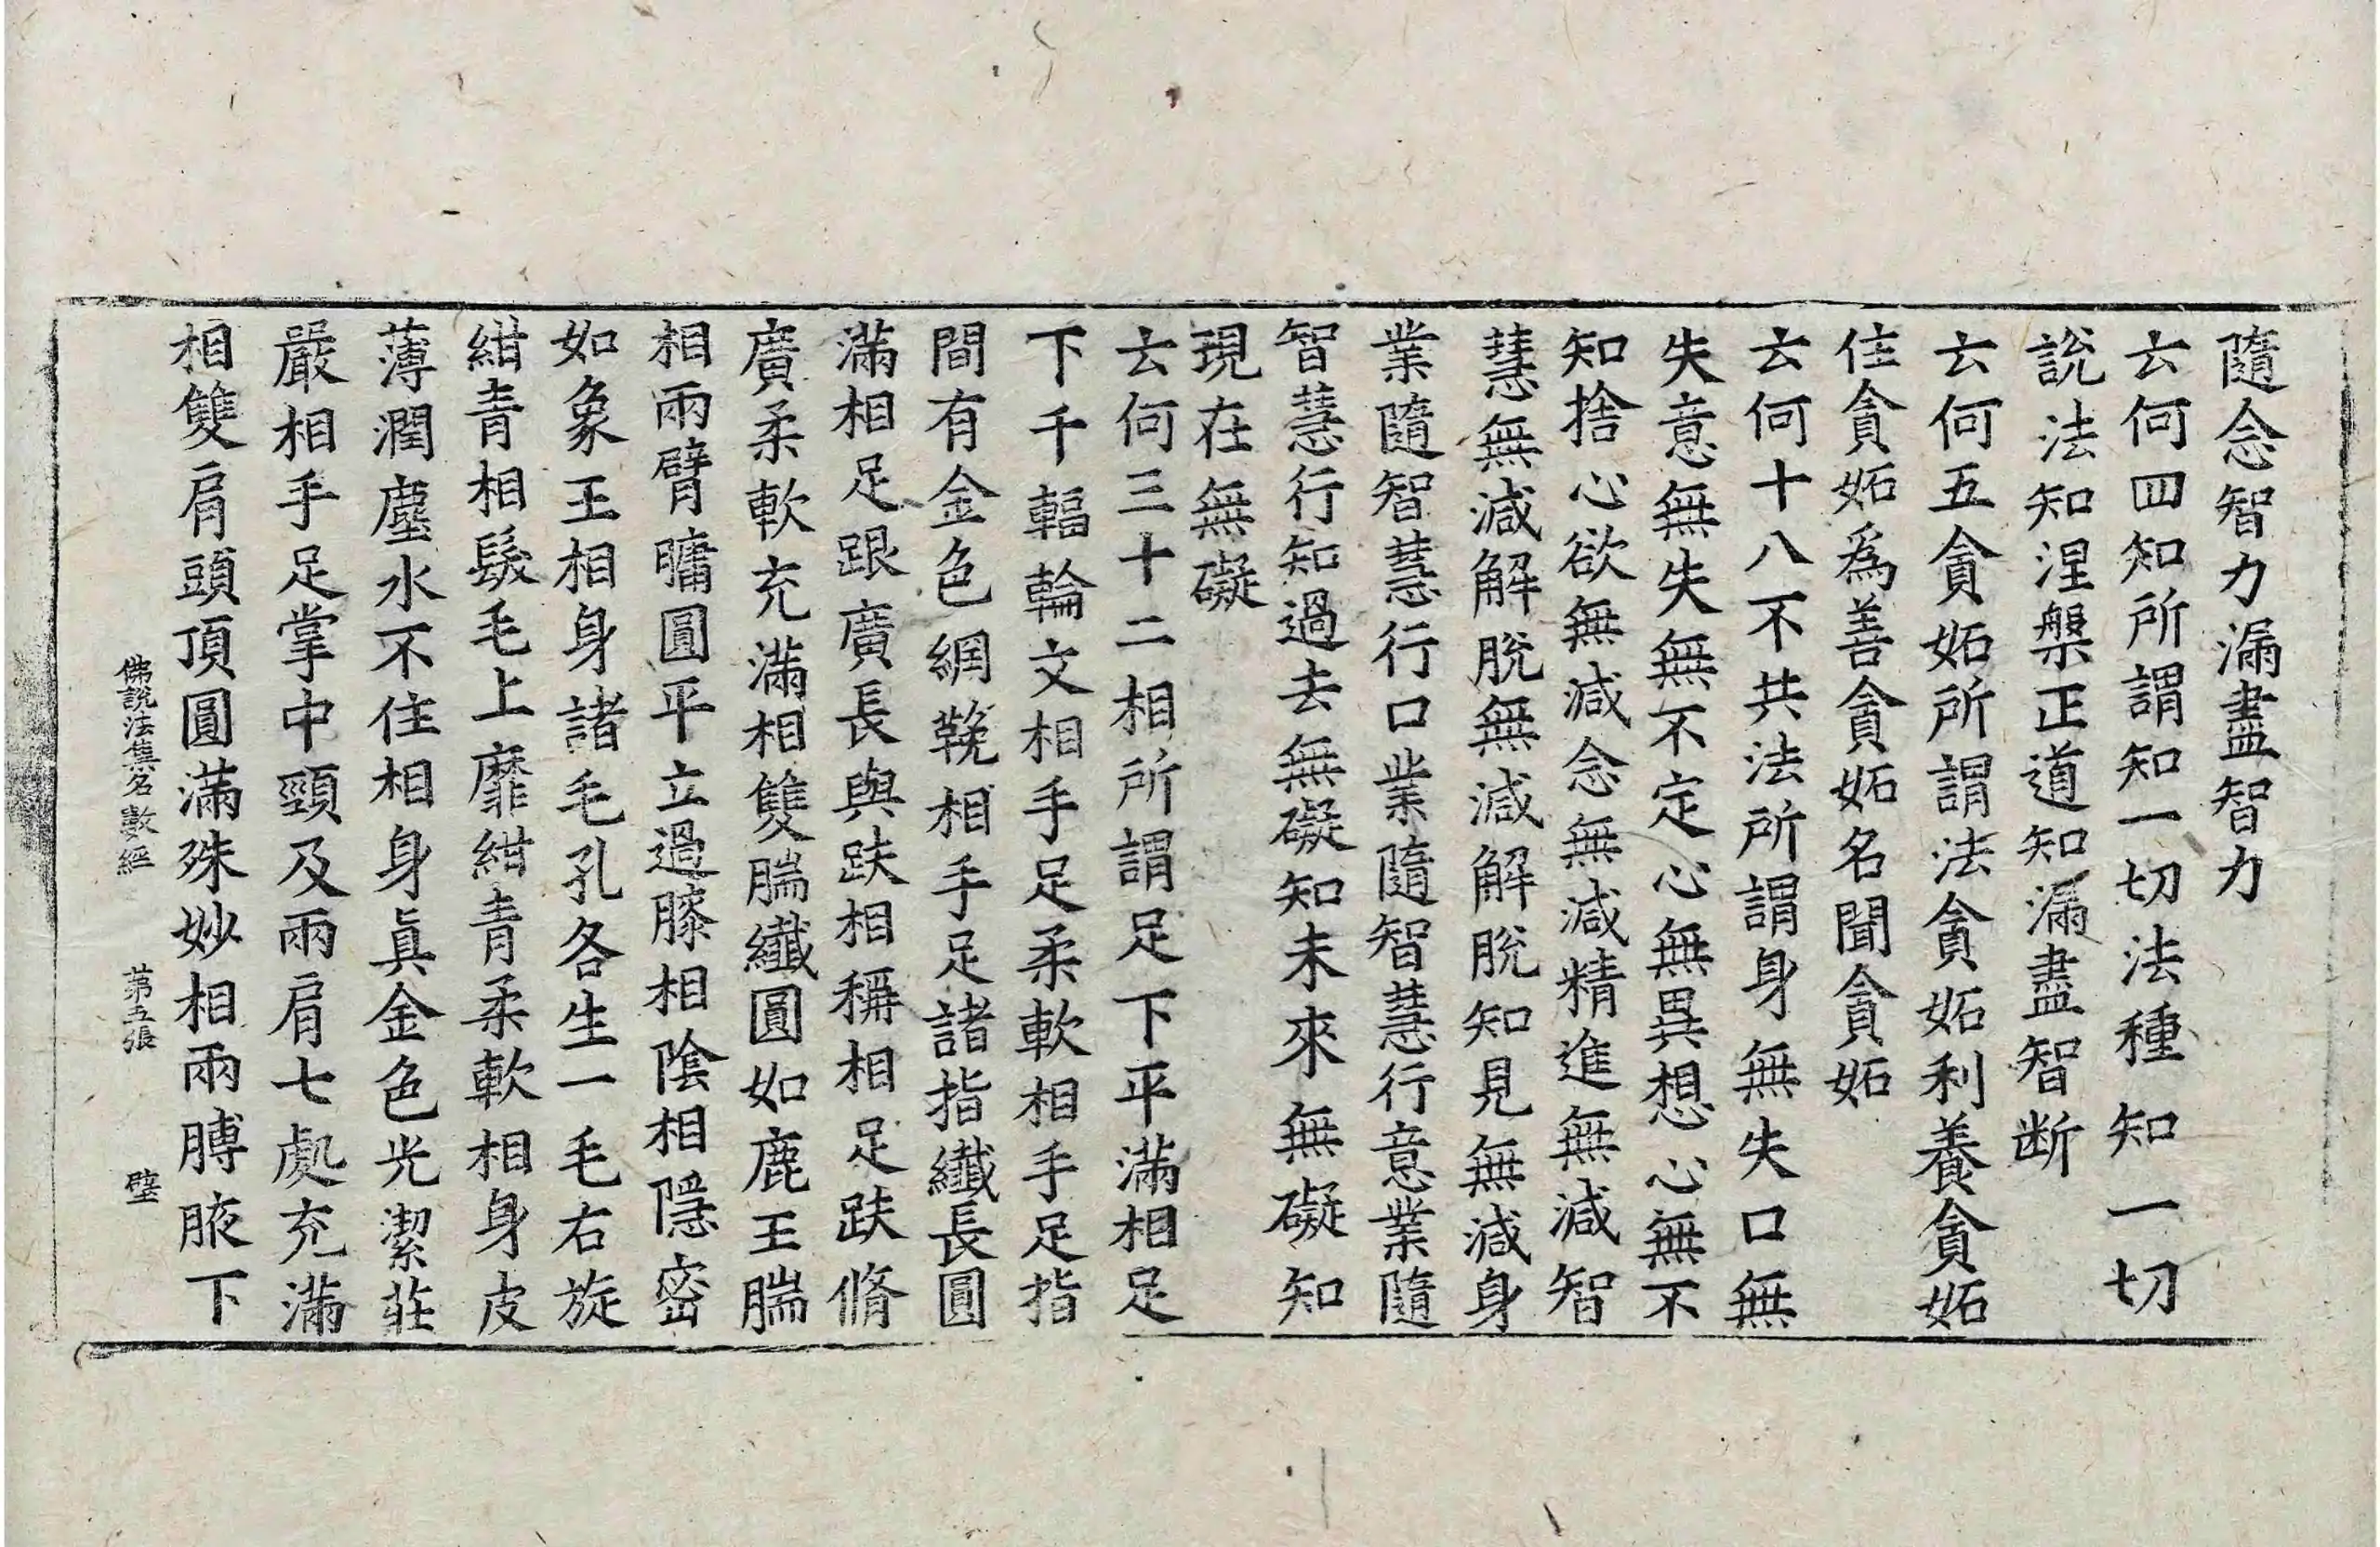 隨念智力漏盡智力
云何四知所謂知一切法種知一切
說法知涅槃正道知漏盡智断
云何五貪妬所謂法貪妬利養貪妬
住貪妬爲善貪妬名聞貪妬
云何十八不共法所謂身無失口無
失意無失無不定心無異想心無不
知捨心欲無減念無減精進無減智
慧無減解脫無減解脫知見無減身
業隨智慧行口業隨智慧行意業隨
智慧行知過去無礙知未來無礙知
現在無礙
云何三十二相所謂足下平滿相足
下千輻輪文相手足柔軟相手足指
間有金色網鞔相手足諸指纖長圓
滿相足跟廣長與趺相稱相足趺脩
廣柔軟充滿相雙腨纖圓如鹿王腨
相兩臂𦟛圓平立過膝相陰相隱密
如象王相身諸毛孔各生一毛右旋
紺青相髮毛上靡紺青柔軟相身皮
薄潤塵水不住相身真金色光潔莊
嚴相手足掌中頸及兩肩七處充滿
相雙肩頭頂圓滿殊妙相兩膊腋下
佛說法集名數經 第五張 璧